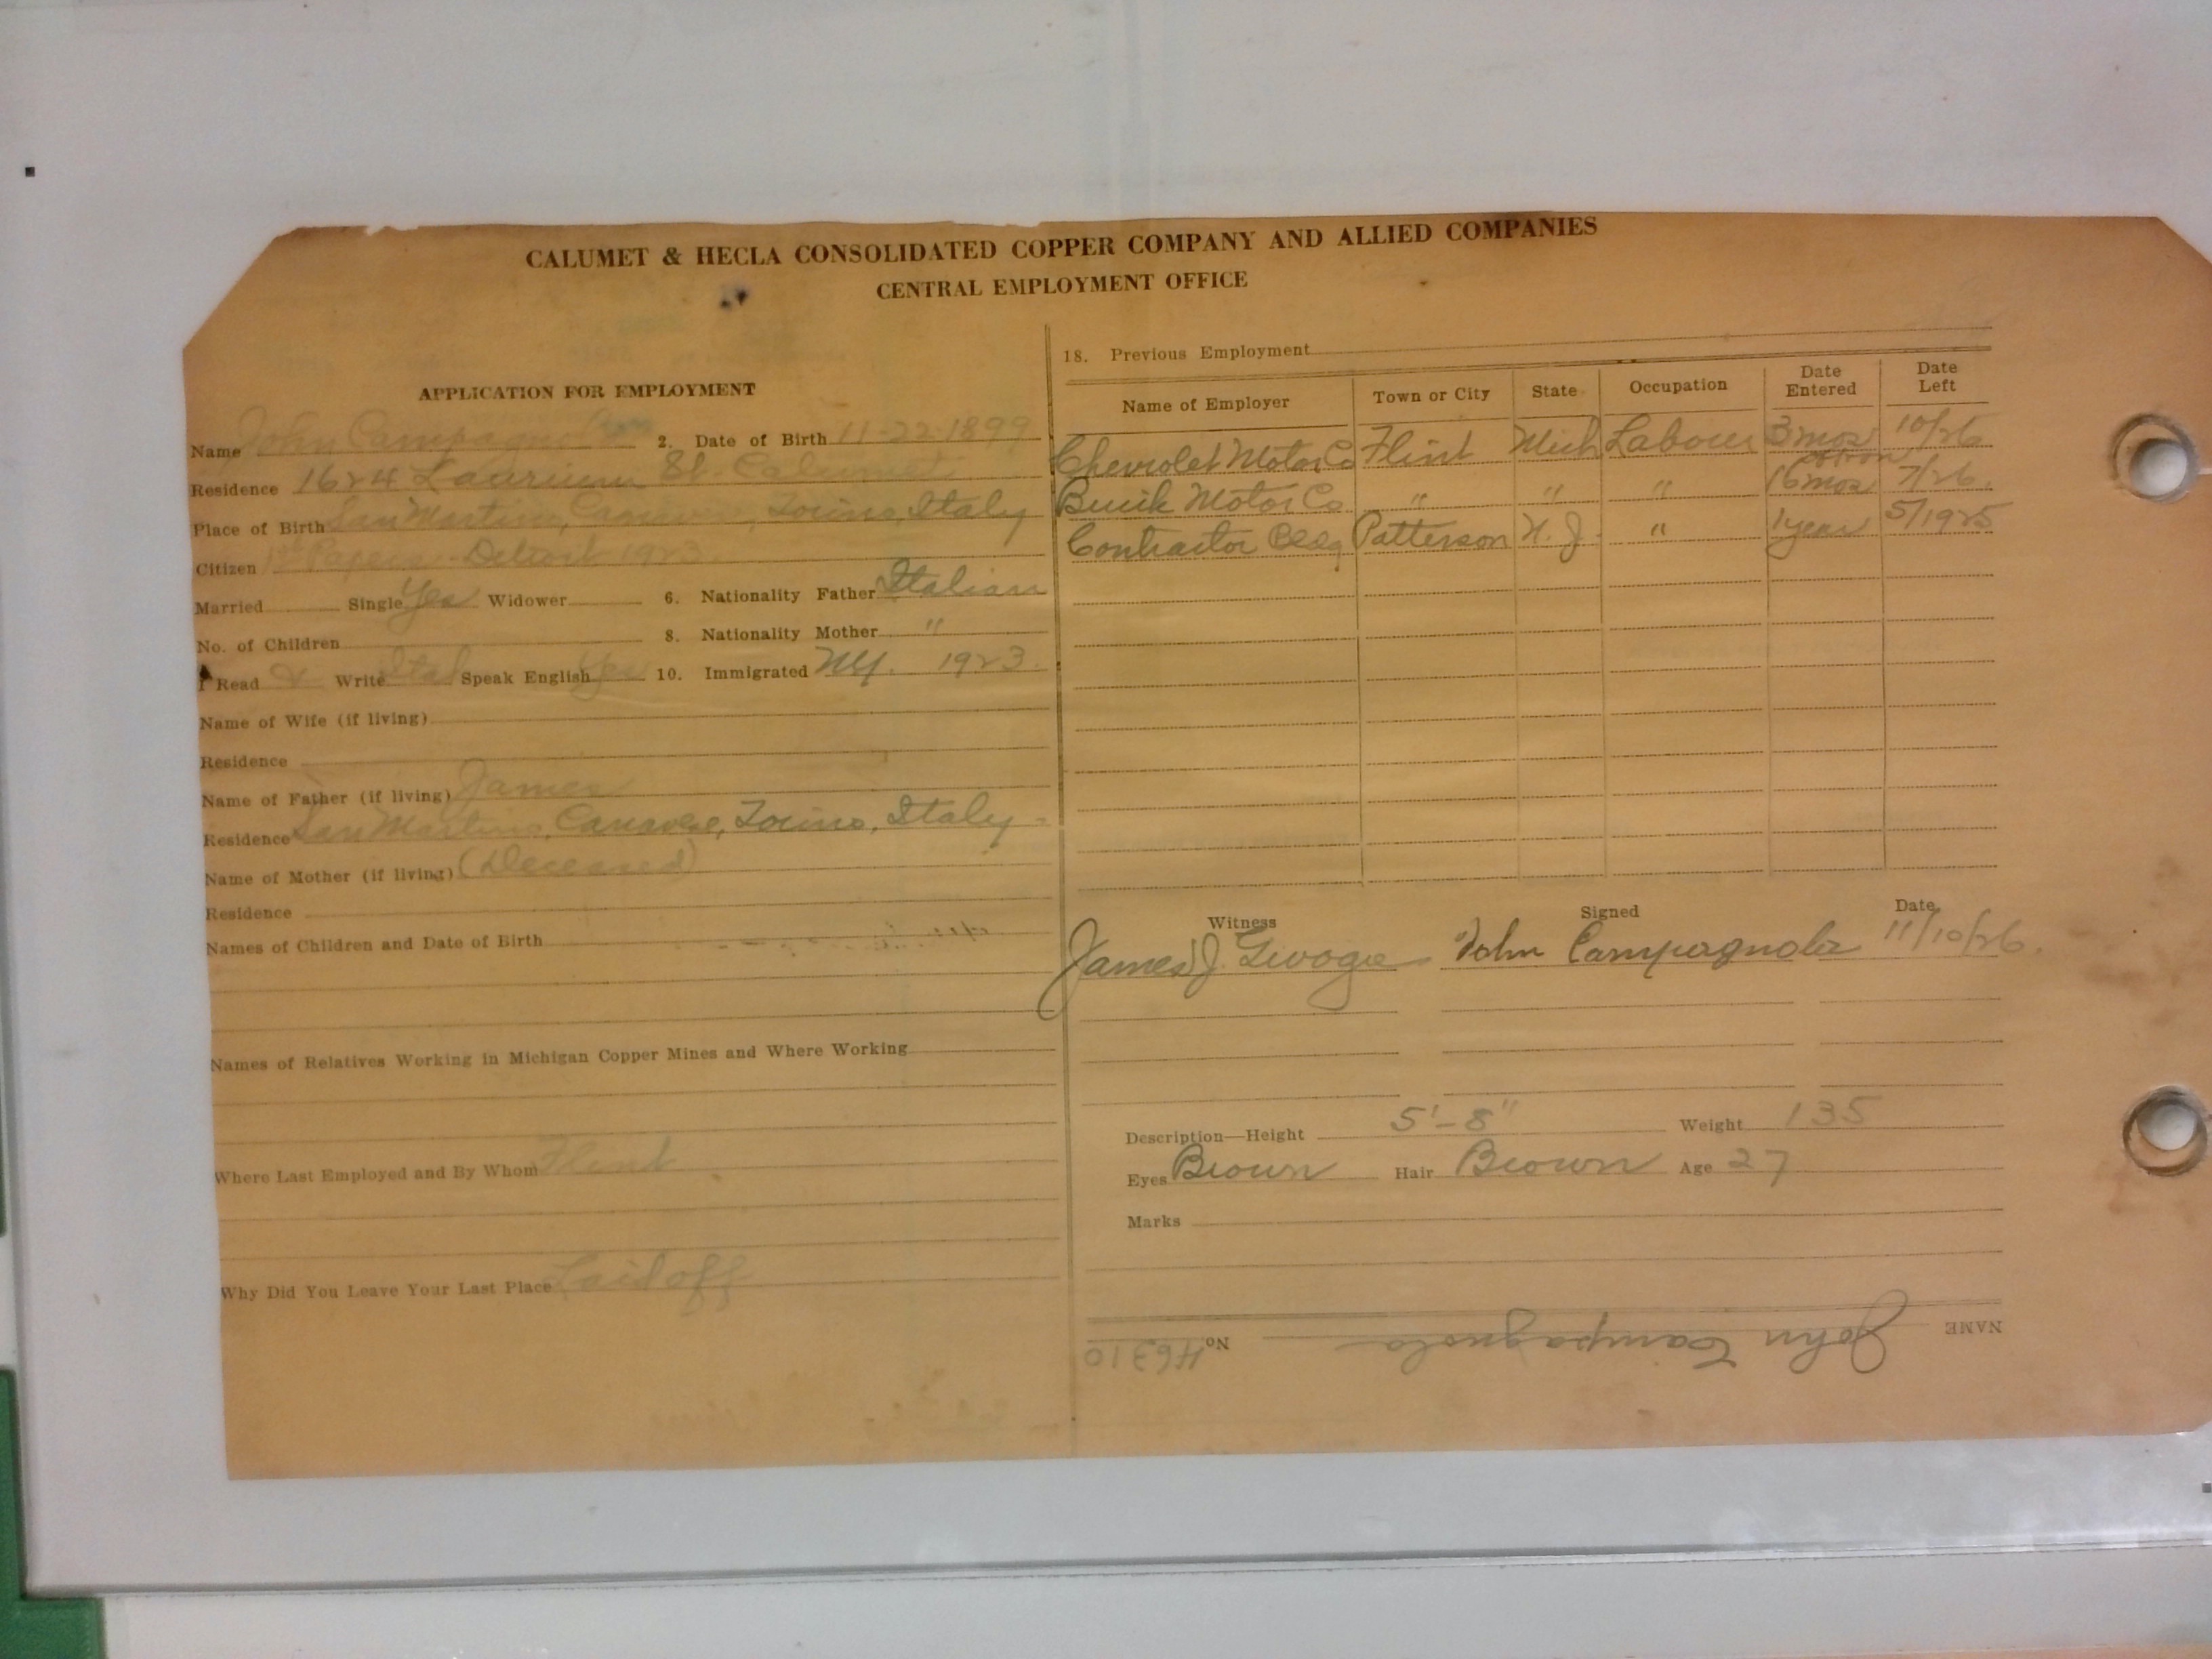 CALUMET & HECLA CONSOLIDATED COPPER COMPANY AND ALLIED COMPANIES
CENTRAL EMPLOYMENT OFFICE
APPLICATION FOR EMPLOYMENT
Name John Campagnola 2. Date of Birth 11-22-1899
Residence 1624 Laurium St. Calumet
Place of Birth San Martino, Canavese, Torino, Italy
Citizen 1st Papers - Detroit 1923.
Married Single Yes Widower 6. Nationality Father Italian
No. of Children 8. Nationality Mother "
Read & Write Ital Speak English Yes 10. Immigrated NY. 1923.
Name of Wife (if living)
Residence
Name of Father (if living) James
Residence San Martino, Canavese, Torino, Italy -
Name of Mother (if living) (Deceased)
Residence
Names of Children and Date of Birth
Names of Relatives Working in Michigan Copper Mines and Where Working
Where Last Employed and By Whom Flint
Why Did You Leave Your Last Place Laid off
18. Previous Employment
Name of Employer Town or City State Occupation Date Entered Date Left
Chevrolet Motor Co Flint Mich Labour 3 mos 10/26
Buick Motor Co " " " 16 mos 7/26.
Contractor Bldg Patterson N. J. " 1 year 5/1925
Witness Signed Date
James J. John Campagnola 11/10/26.
Description—Height 5'-8" Weight 135
Eyes Brown Hair Brown Age 27
Marks
NAME John Campagnola No. H6310